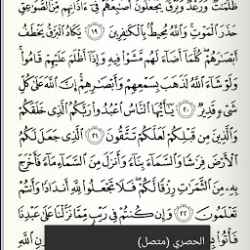 ظُلُمَٰتٌ وَرَعْدٌ وَبَرْقٌ يَجْعَلُونَ أَصَٰبِعَهُمْ فِىٓ ءَاذَانِهِم مِّنَ ٱلصَّوَٰعِقِ
حَذَرَ ٱلْمَوْتِ وَٱللَّهُ مُحِيطٌۢ بِٱلْكَٰفِرِينَ ١٩ يَكَادُ ٱلْبَرْقُ يَخْطَفُ
أَبْصَٰرَهُمْ كُلَّمَآ أَضَآءَ لَهُم مَّشَوْا۟ فِيهِ وَإِذَآ أَظْلَمَ عَلَيْهِمْ قَامُوا۟
وَلَوْ شَآءَ ٱللَّهُ لَذَهَبَ بِسَمْعِهِمْ وَأَبْصَٰرِهِمْ إِنَّ ٱللَّهَ عَلَىٰ كُلِّ
شَىْءٍ قَدِيرٌ ٢٠ يَٰٓأَيُّهَا ٱلنَّاسُ ٱعْبُدُوا۟ رَبَّكُمُ ٱلَّذِى خَلَقَكُمْ
وَٱلَّذِينَ مِن قَبْلِكُمْ لَعَلَّكُمْ تَتَّقُونَ ٢١ ٱلَّذِى جَعَلَ لَكُمُ
ٱلْأَرْضَ فِرَٰشًا وَٱلسَّمَآءَ بِنَآءً وَأَنزَلَ مِنَ ٱلسَّمَآءِ مَآءً فَأَخْرَجَ
بِهِۦ مِنَ ٱلثَّمَرَٰتِ رِزْقًا لَّكُمْ فَلَا تَجْعَلُوا۟ لِلَّهِ أَندَادًا وَأَنتُمْ
تَعْلَمُونَ ٢٢ وَإِن كُنتُمْ فِى رَيْبٍ مِّمَّا نَزَّلْنَا عَلَىٰ عَبْدِنَا
فَأْتُوا۟
الحصري (متصل)